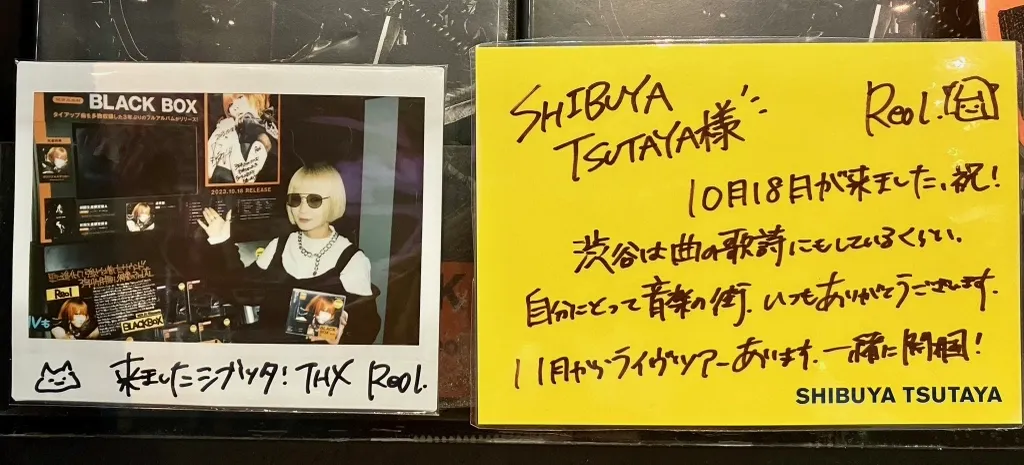 BLACK BOX
タイアップ曲も多数収録した3年ぶりのフルアルバムがリリース!
2023.10.18 RELEASE
Reol
BLACKBOX
IVも
来ましたシブツタ! THX Reol.
SHIBUYA
TSUTAYA様
Reol.
10月18日が来ました、祝!
渋谷は曲の歌詩にもしているくらい、
自分にとって音楽の街. いつもありがとうございます.
11月からライヴツアーあります. 一緒に開国!
SHIBUYA TSUTAYA